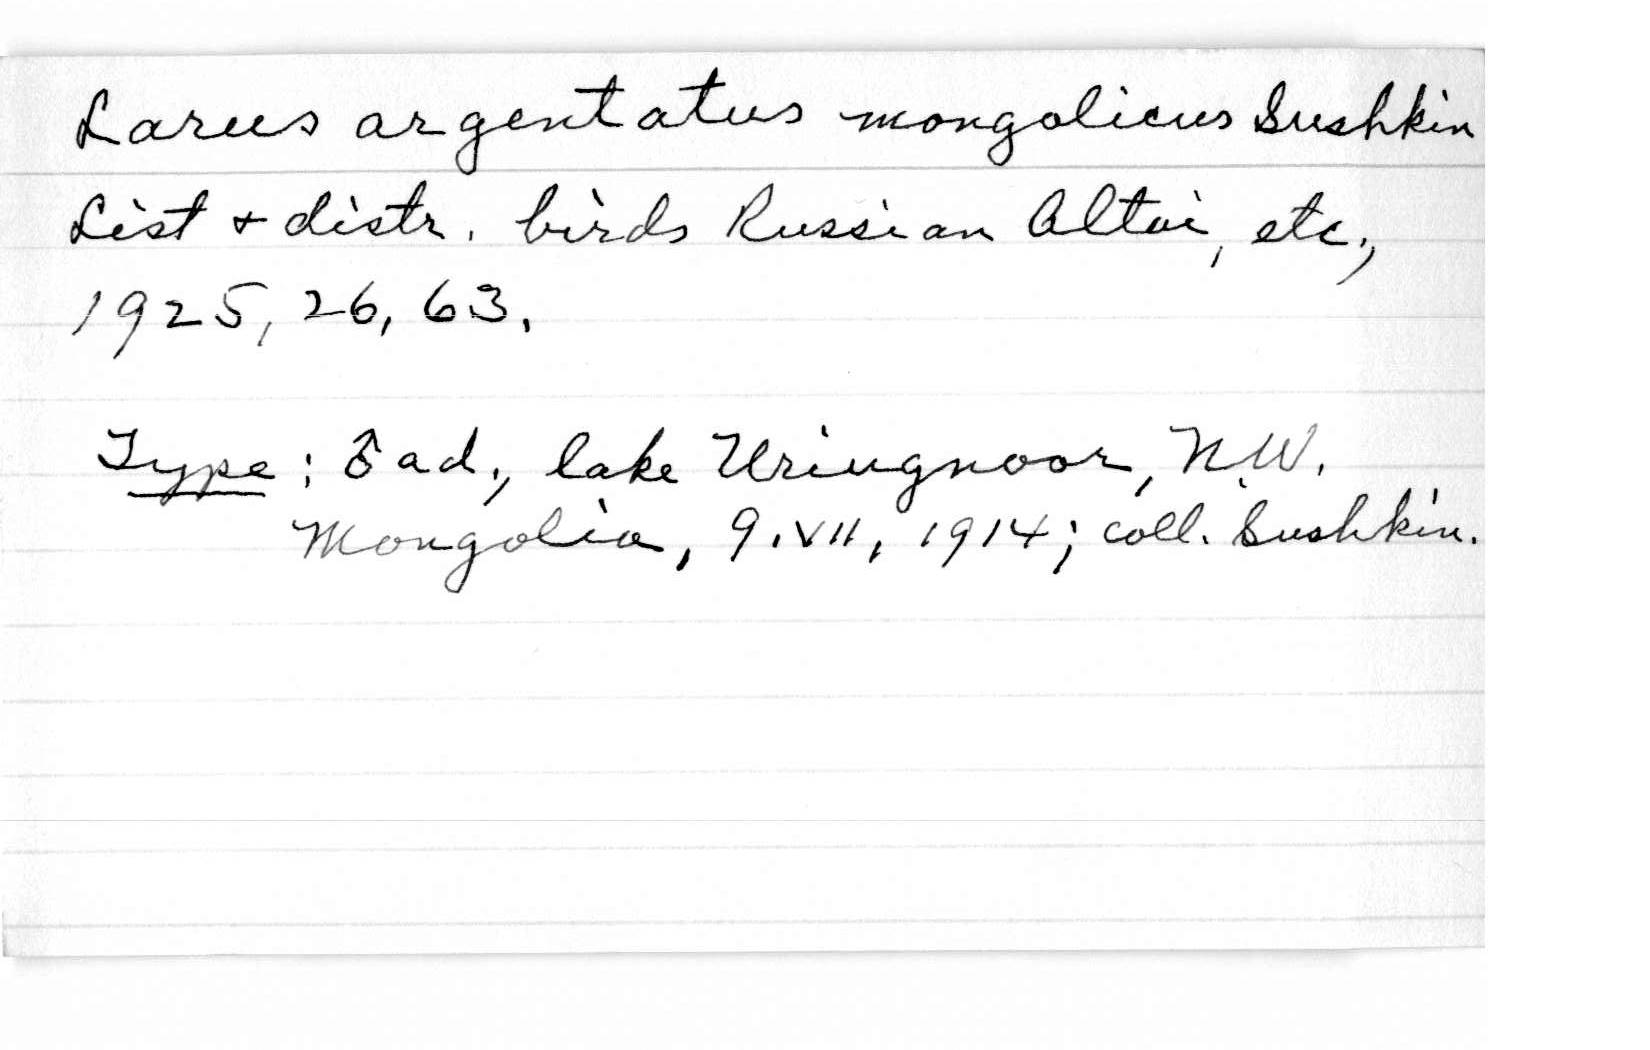 Larus argentatus mongolicus Sushkin
List + distr. birds Russian Altai, etc.,
1925, 26, 63.
Type: ♂ ad., lake Uriugnoor, N.W.
Mongolia, 9.VII, 1914; coll. Sushkin.